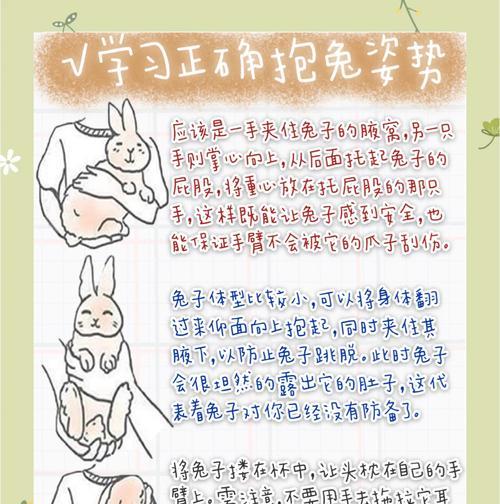 √学习正确抱兔姿势
应该是一手夹住兔子的腋窝,另一只
手则掌心向上,从后面托起兔子的
屁股,将重心放在托屁股的那只
手,这样既能让兔子感到安全,也
能保证手臂不会被它的爪子刮伤。
兔子体型比较小,可以将身体翻
过来仰面向上抱起,同时夹住其
腋下,以防止兔子跳脱。此时兔子
会很坦然的露出它的肚子,这代
表着兔子对你已经没有防备了。
将兔子搂在怀中,让头枕在自己的手
臂上。需注意,不要用手去拖拉它耳